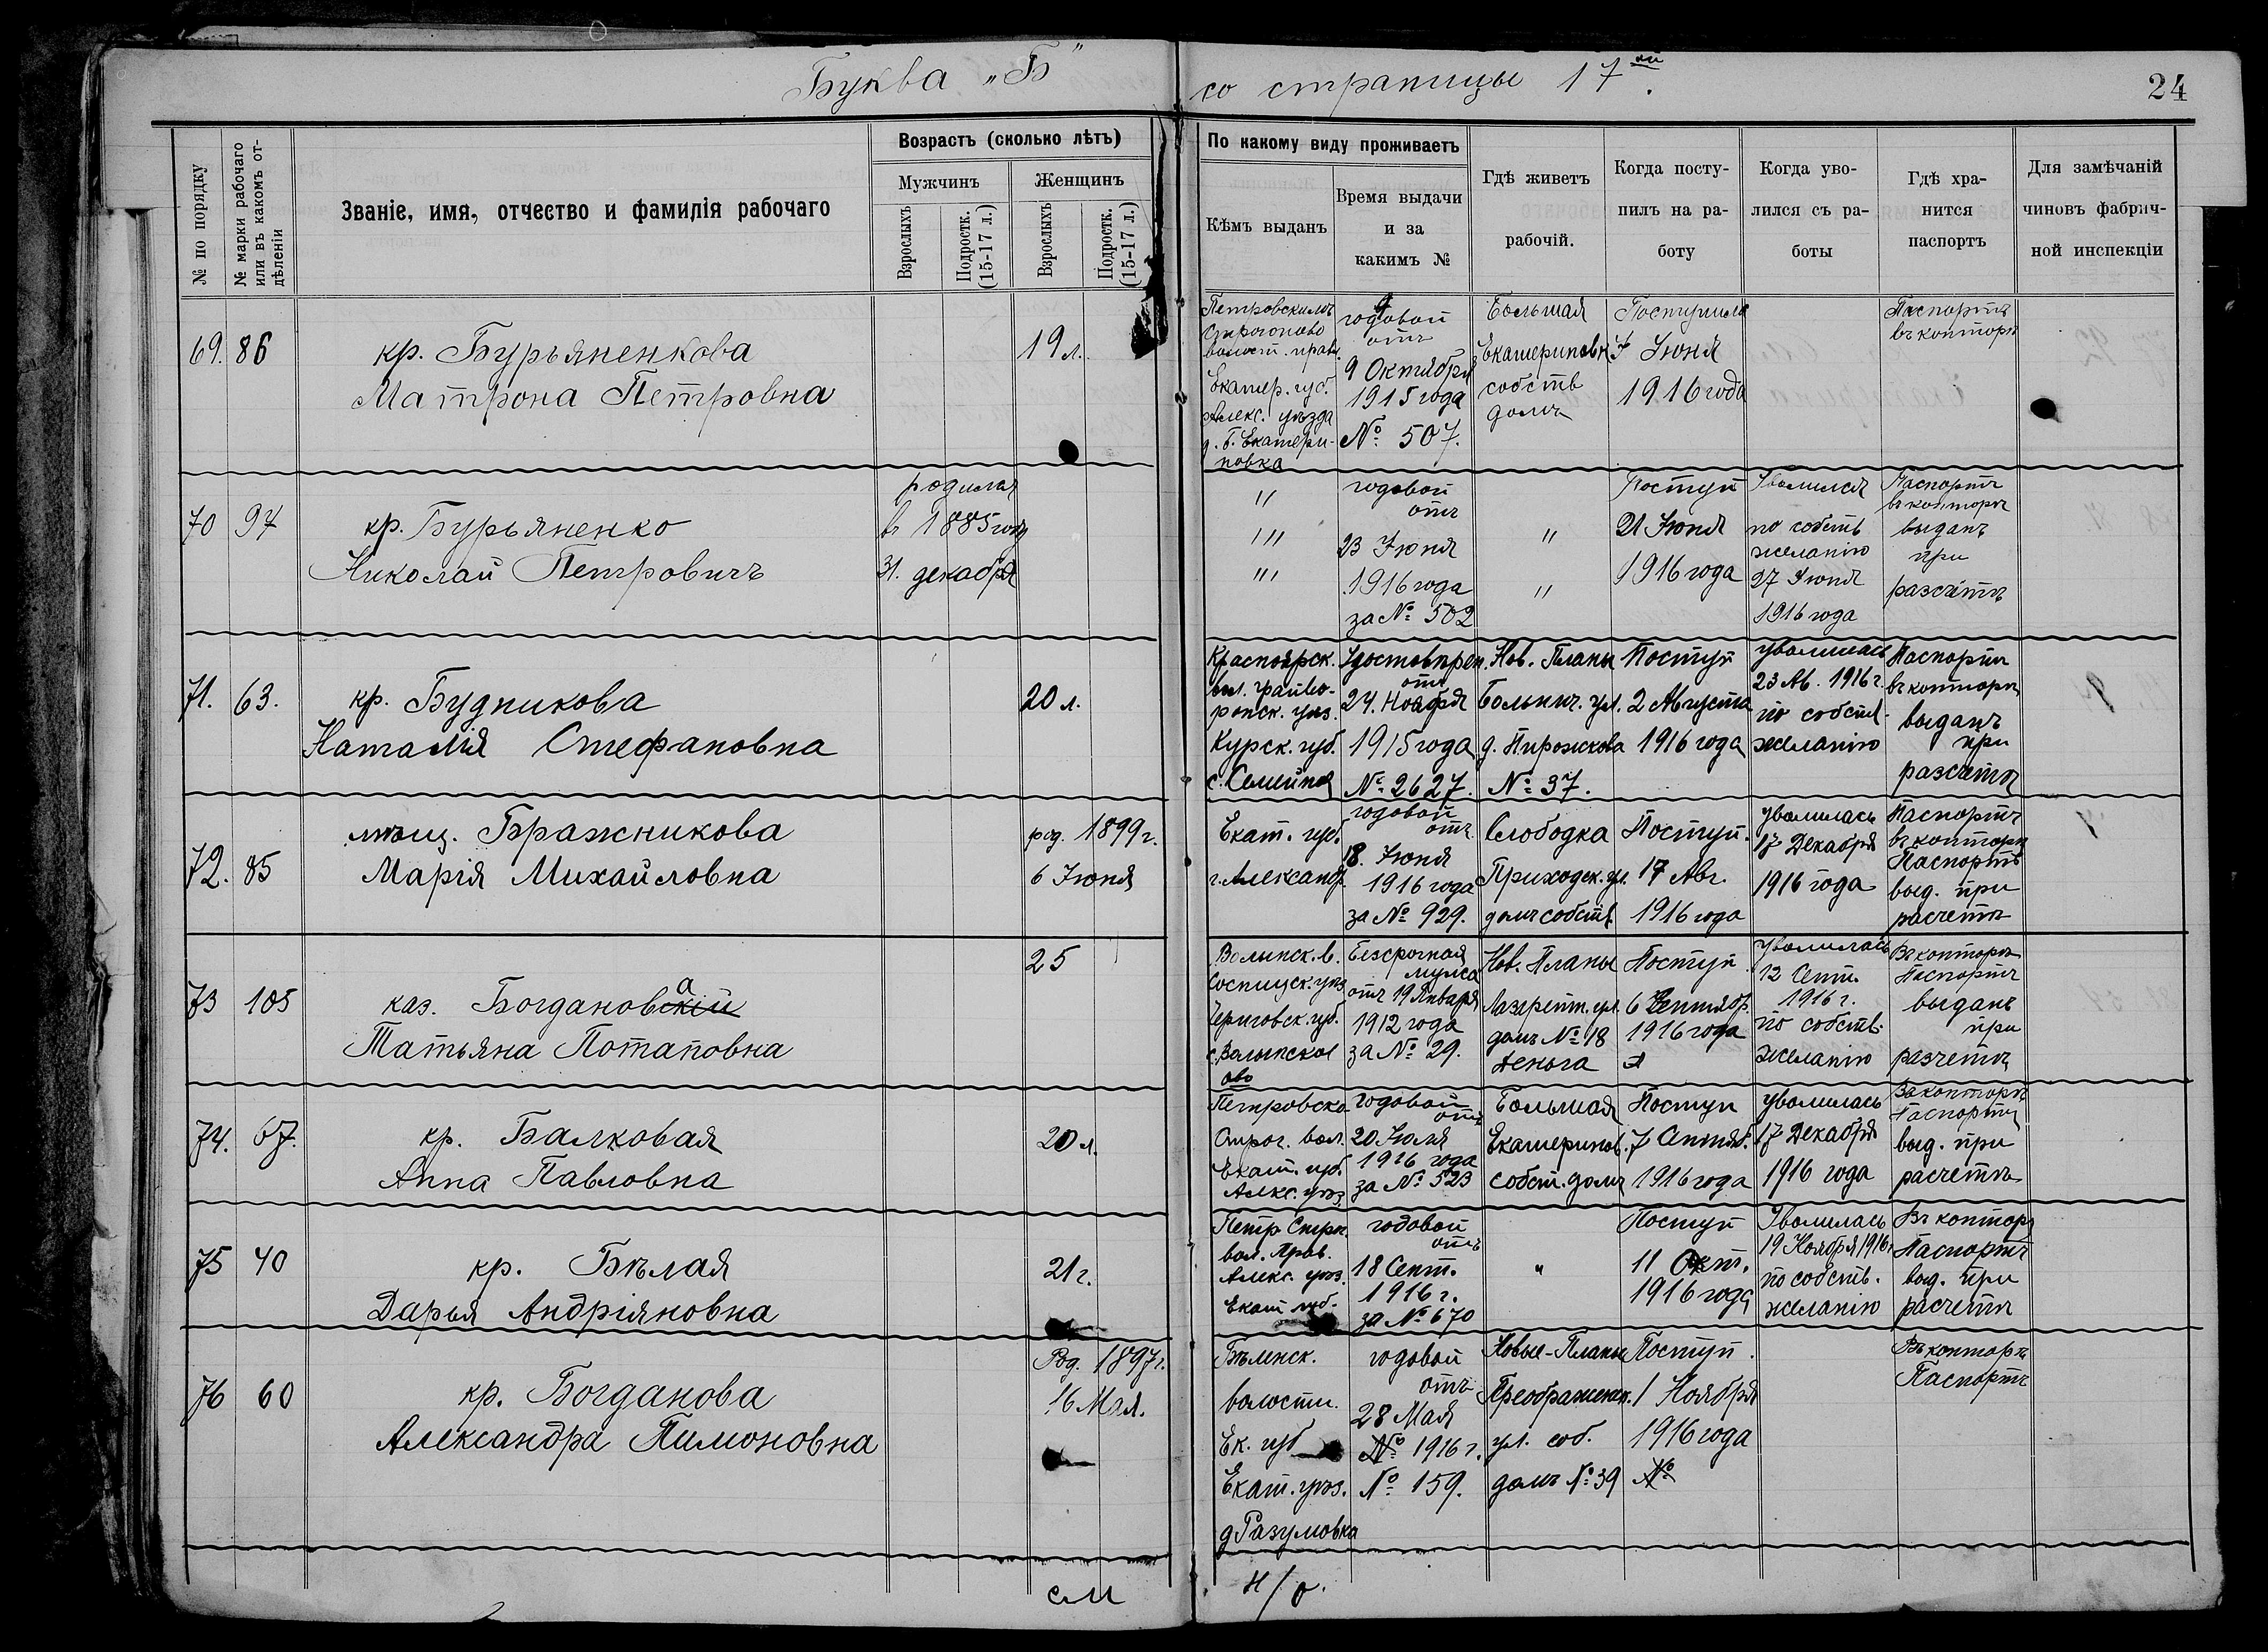 Буква „Б"
со страницы 17ой.
24
№ по порядку
№ марки рабочаго или въ какомъ от-
дѣленіи
Званіе, имя, отчество и фамилія рабочаго
Возрастъ (сколько лѣтъ)
Мужчинъ
Женщинъ
Взрослыхъ
Подростк. (15-17 л.)
Взрослыхъ
Подростк. (15-17 л.)
По какому виду проживаетъ
Кѣмъ выданъ
Время выдачи
и за
какимъ №
Гдѣ живетъ
рабочій.
Когда посту-
пилъ на ра-
боту
Когда уво-
лился съ ра-
боты
Гдѣ хра-
нится
паспортъ
Для замѣчаній
чиновъ фабрич-
ной инспекціи
69. 86
кр. Бурьяненкова
Матрона Петровна
19 л.
Петровскимъ
волост. правл.
Екатер. губ.
Алекс. уѣзда
д. Б. Екатери-
новка
годовой
отъ
9 Октября
1915 года
№ 507.
Большая
Екатериновк
собств
домъ
Поступила
7 Іюня
1916 года
Паспортъ
въ конторѣ
70 97
кр. Бурьяненко
Николай Петровичъ
родился
в 1885 году
31. декабря
"
"
"
годовой
отъ
23 Іюня
1916 года
за № 502
"
"
Поступ
21 Іюня
1916 года
Уволился
по собств
желанію
27 Іюня
1916 года
Паспортъ
въ конторѣ
выданъ
при
разсчетѣ
71. 63.
кр. Будникова
Наталія Стефановна
20 л.
Красноярск.
вол. Грайво-
ронск. уѣз.
Курск. губ.
с. Семейное
Удостовѣрен.
отъ
24. Ноября
1915 года
№ 2627.
Нов. Планы
Больнич. ул.
д. Пирожкова
№ 37.
Поступ
2 Августа
1916 года
уволилась
23 Ав. 1916 г.
по собств.
желанію
Паспортъ
въ конторѣ
выданъ
при
разсчетѣ
72. 85
мѣщ. Бражникова
Марія Михайловна
род. 1899 г.
6 Іюня
Екат. губ.
г. Александр.
годовой
отъ
18. Іюня
1916 года
за № 929.
Слободка
Приходск. ул.
домъ собств.
Поступ.
17 Авг.
1916 года
уволилась
17 Декабря
1916 года
Паспортъ
въ конторѣ
Паспортъ
выд. при
расчетѣ
73 105
каз. Богдановскій а
Татьяна Потаповна
25
Волынск. в.
Сосницск. уѣз
Черниговск. губ.
с. Волынское
Безсрочная
отъ 19 Января
1912 года
за № 29.
Нов. Планы
Лазаретн. ул.
домъ № 18
Поступ.
6 Сентябр.
1916 года
Уволилась
12 Сент.
1916 г.
по собств.
желанію
Въ конторѣ
Паспортъ
выданъ
при
разчетѣ
74. 67.
кр. Балковая
Анна Павловна
20 л.
Петровско
Строг. вол.
Екат. губ.
Алекс. уѣз.
годовой
отъ
20. Іюля
1916 года
за № 523
Большая
Екатеринов.
собст. домъ
Поступ
7 Сентяб.
1916 года
уволилась
17 Декабря
1916 года
Въ конторѣ
Паспортъ
выд. при
расчетѣ
75 40
кр. Бѣлая
Дарья Андріяновна
21 г.
вол. Прав.
Алекс. уѣз.
Екат. губ.
годовой
отъ
18 Сент.
1916 г.
за № 670
"
Поступ
11 Окт.
1916 года
Уволилась
19 Ноября 1916 г
по собств.
желанію
Въ контор
Паспортъ
выд. при
расчетѣ
76 60
кр. Богданова
Александра Пимоновна
Род. 1897 г.
16 Мая.
Бѣленск.
волости.
Ек. губ
Екат. уѣз.
д Разумовка
годовой
отъ
28 Мая
№ 1916 г.
№ 159.
Новые-Планы
Преображенск.
ул. соб.
домъ № 39
Поступ.
1 Ноября
1916 года
№
Въ конторѣ
Паспортъ
см
н/о.